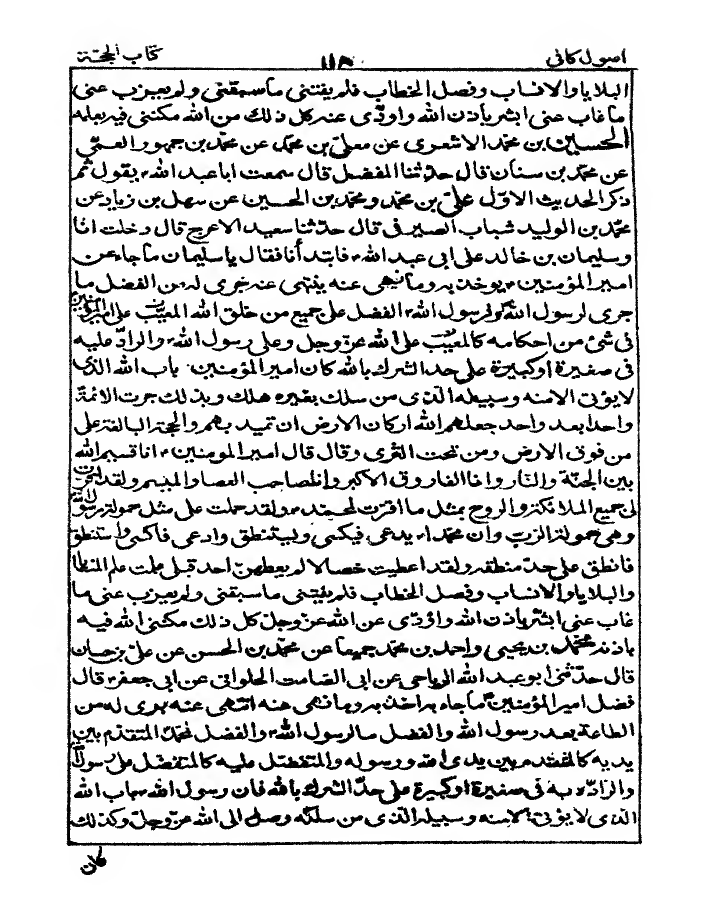 اصول کافی ١١٥ کتاب الحجّة
البلایا والانساب وفصل الخطاب فلم یفتنی ماسبقنی ولم یعزب عنی
ما غاب عنی ابشر باذن الله واودّی عنه کل ذلك من الله مکننی فیه بعلمه
الحسین بن محمّد الاشعری عن معلی بن محمّد عن محمّد بن جمهور العمّی
عن محمّد بن سنان قال حدّثنا المفضل قال سمعت اباعبد الله؏ یقول ثم
ذکر الحدیث الاوّل علیّ بن محمّد ومحمّد بن الحسین عن سهل بن زیاد عن
محمّد بن الولید شباب الصیرفی قال حدّثنا سعید الاعرج قال دخلت انا
وسلیمان بن خالد علی ابی عبد الله؏ فابتدأنا فقال یاسلیمان ماجاء عن
امیر المؤمنین؏ یوخذ به وما نهی عنه ینتهی عنه جری له من الفضل ما
جری لرسول الله ولرسول الله؏ الفضل علی جمیع من خلق الله المعیّب علی امیر المؤمنین
فی شئ من احکامه کالمعیّب علی الله عزّ وجل وعلی رسول الله؏ والرادّ علیه
فی صغیرة او کبیرة علی حد الشرك بالله کان امیر المؤمنین؏ باب الله الذی
لایؤتی الا منه وسبیله الذی من سلك بغیره هلك وبذلك جرت الائمّة
واحدا بعد واحد جعلهم الله ارکان الارض ان تمید بهم والحجة البالغة علی
من فوق الارض ومن تحت الثری وقال قال امیر المومنین؏ انا قسیم الله
بین الجنّة والنّار وانا الفاروق الاکبر وانا صاحب العصا والمیسم ولقد اقرّت
لی جمیع الملائکة والروح بمثل ما اقرّت لمحمّد؏ ولقد حملت علی مثل حمولة رسول الله
وهی حمولة الرّبّ وان محمّدا؏ یدعی فیکسی ویستنطق وادعی فاکسی واستنطق
فانطق علی حدّ منطقه ولقد اعطیت خصالا لم یعطهنّ احد قبلی علمت علم المنایا
والبلایا والانساب وفصل الخطاب فلم یفتنی ماسبقنی ولم یعزب عنی ما
غاب عنی ابشّر باذن الله واؤدّی عن الله عزّ وجلّ کل ذلك مکننی الله فیه
باذنه محمّد بن یحیی واحمد بن محمّد جمیعا عن محمّد بن الحسن عن علیّ بن حسان
قال حدّثنی ابو عبد الله الریاحی عن ابی الصّامت الحلوانی عن ابی جعفر؏ قال
فضل امیر المؤمنین؏ ماجاء به اخذ به وما نهی عنه انتهی عنه جری له من
الطاعة بعد رسول الله والفضل ما لرسول الله؏ والفضل لمحمّد المتقدّم بین
یدیه کالمتقدم بین یدی الله ورسوله والمتفضّل علیه کالمتفضّل علی رسول الله
والرادّ علیه فی صغیرة او کبیرة علی حدّ الشرك بالله فان رسول الله؏ باب الله
الذی لایؤتی الا منه وسبیله الذی من سلکه وصل الی الله عزّ وجلّ وکذلك
کان